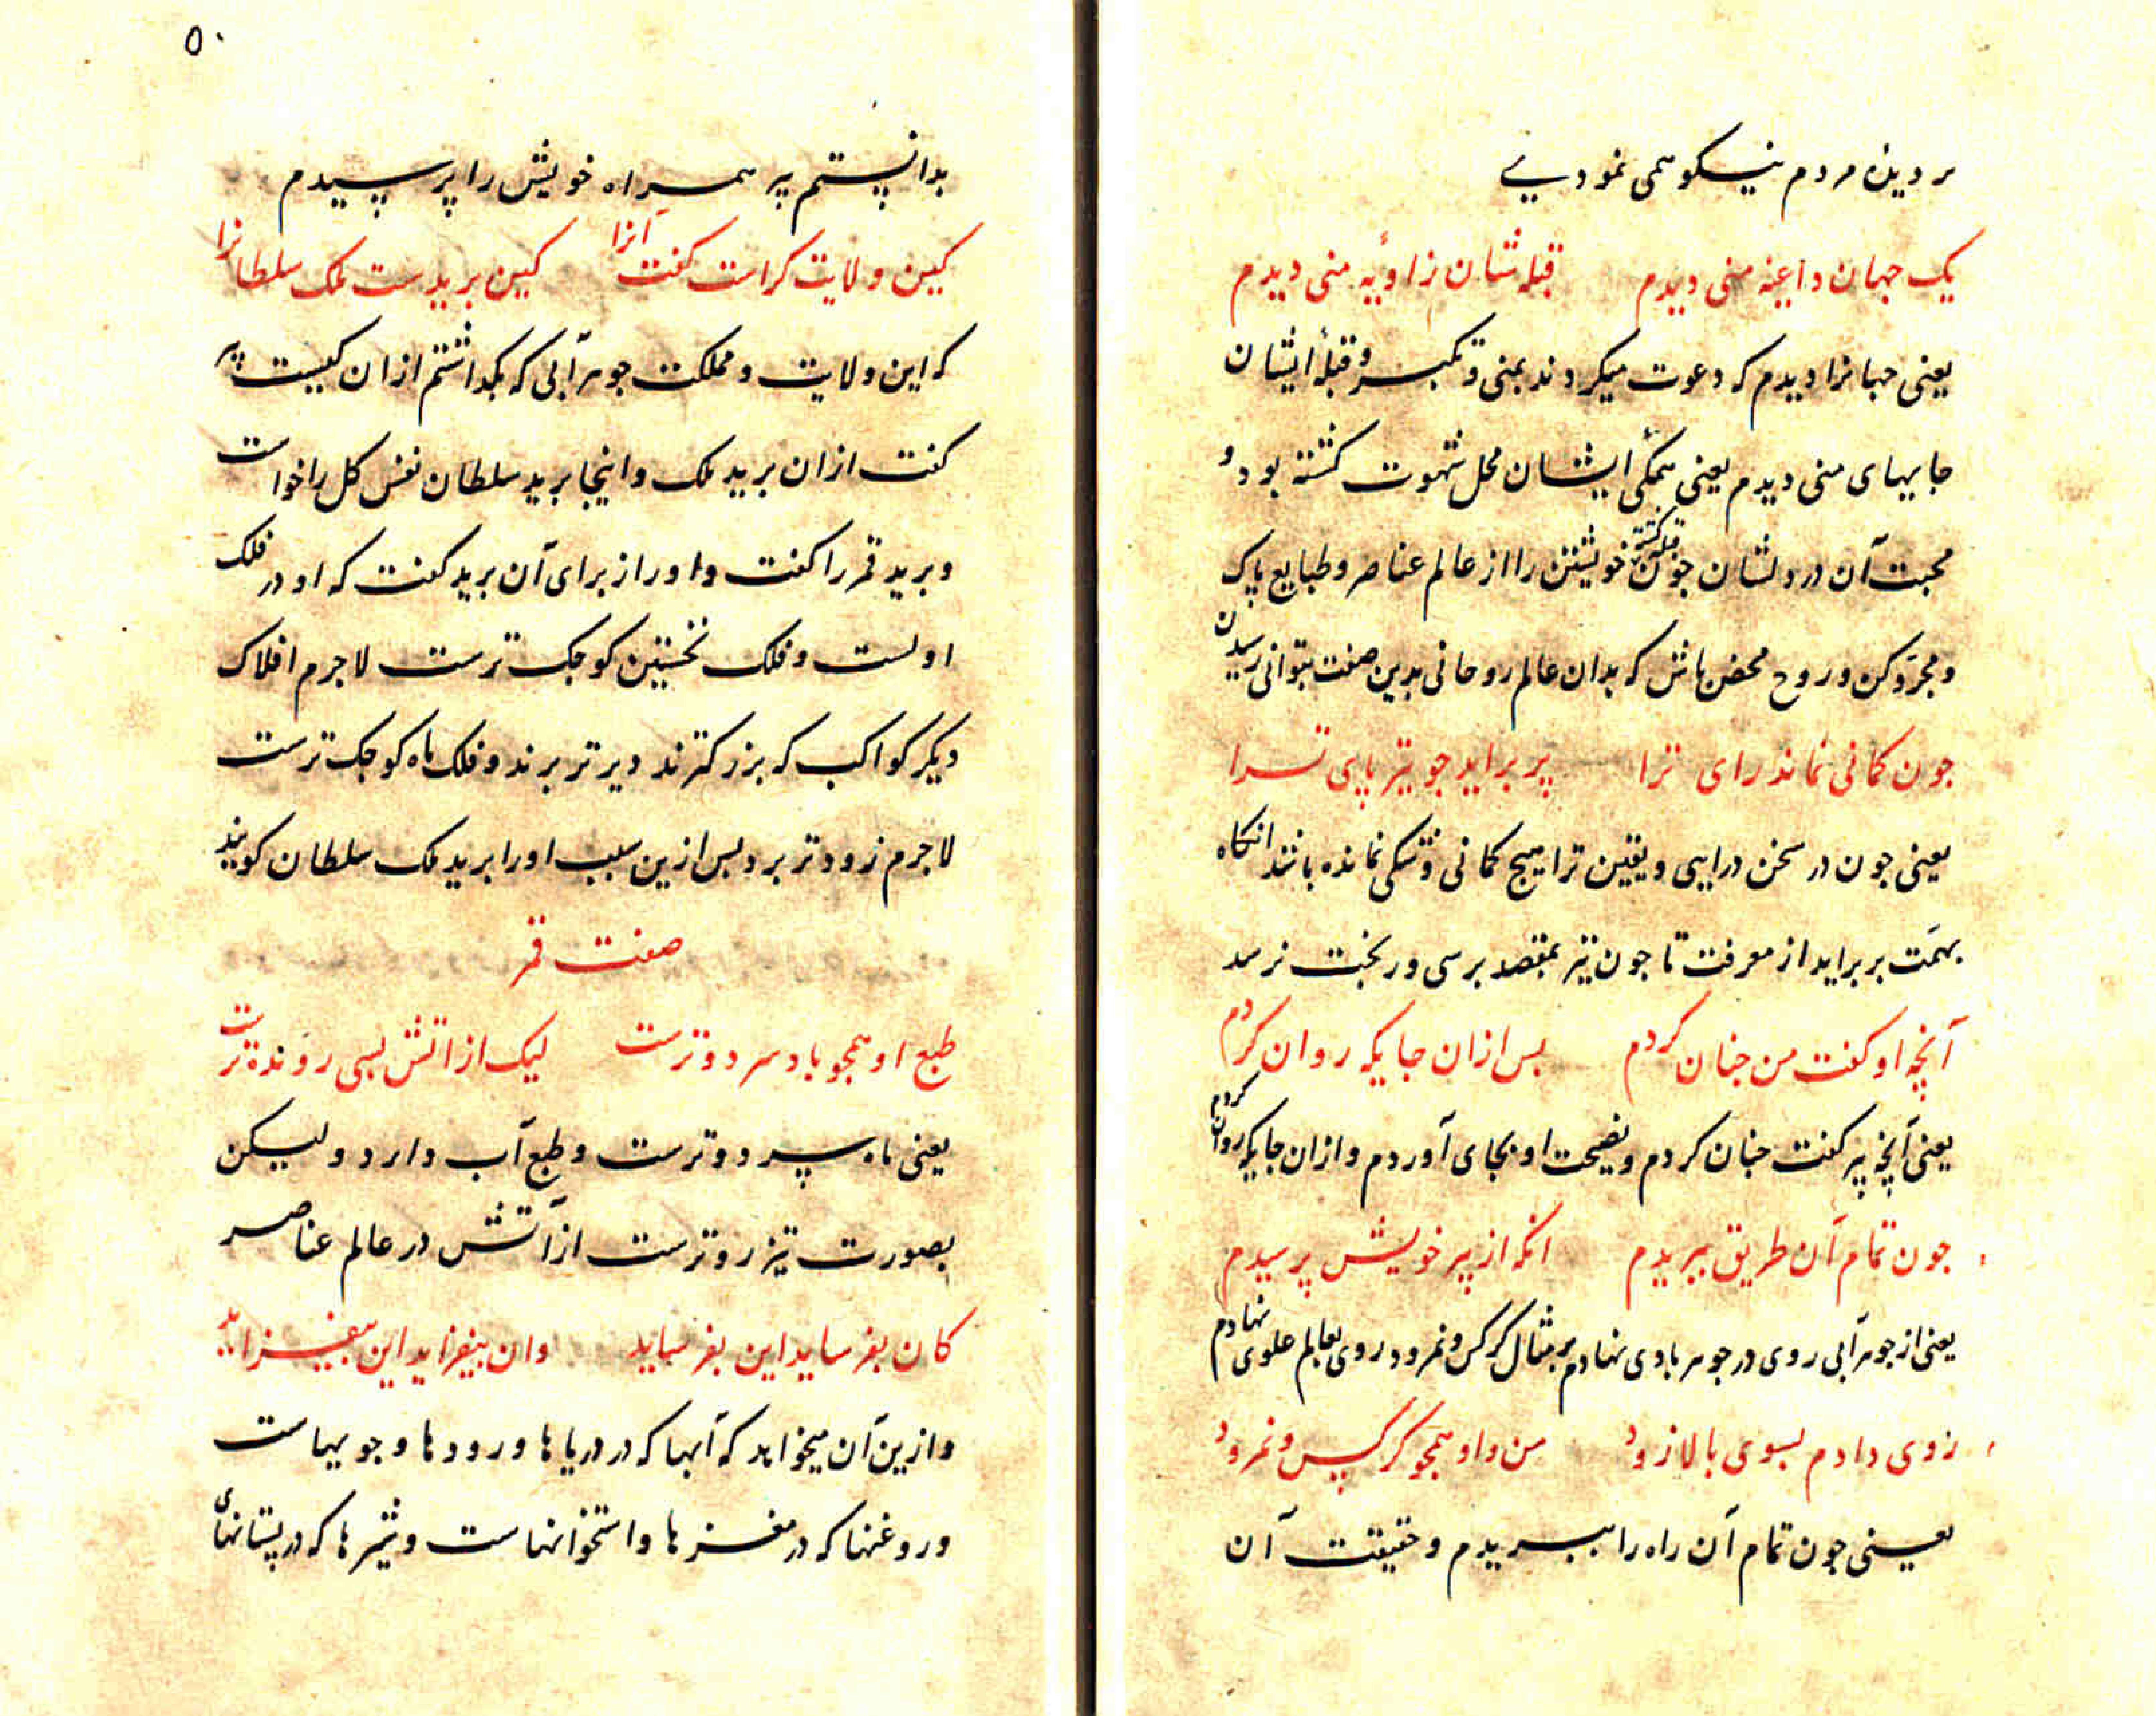 بر دیدهٔ مردم نیکو همی نمودی
یک جهان داعیهٔ منی دیدم قبله شان زاویهٔ منی دیدم
یعنی جهانرا دیدم که دعوت میکردند بمنی و تکبر و قبلهٔ ایشان
جایهای منی دیدم یعنی همگی ایشان محل شهوت کشته بود و
محبت آن در دلشان جون قبله کشته خویشتن را از عالم عناصر و طبایع پاک
و مجرّد کن و روح محض باش که بدان عالم روحانی بدین صفت بتوانی رسیدن
جون کمانی نماند رای ترا پر براید جو تیر پای ترا
یعنی جون در سخن درایی و یقین ترا هیج کمانی و شکی نمانده باشد انکاه
بهمّت بر براید از معرفت تا جون تیر بمقصد برسی و رنجت نرسد
آنچه او کفت من جنان کردم بس ازان جایکه روان کردم
یعنی آنچه پیر کفت جنان کردم و نصیحت او بجای آوردم و ازان جایکه روان کردم
جون تمام آن طریق ببریدم انکه از پیر خویش پرسیدم
یعنی از جوهر آبی روی در جوهر بادی نهادم بر مثال کرکس و نمرود روی بعالم علوی نهادم
روی دادم بسوی بالا زود من و او همجو کرکس و نمرود
یعنی جون تمام آن راه را ببریدم و حقیقت آن
۵۰
بدانستم پیر همراه خویش را پرسیدم
کین ولایت کراست کفت آنرا کین برید ست ملک سلطانرا
که این ولایت و مملکت جوهر آبی که بکداشتم ازان کیست پیر
کفت ازان برید ملک و اینجا برید سلطان نفس کل را خواست
و برید قمر را کفت و اورا از برای آن برید کفت که او در فلک
اولست و فلک نخستین کوجک ترست لاجرم افلاک
دیکر کواکب که بزرکترند دیرتر برند و فلک ماه کوجک ترست
لاجرم زودتر برد بس ازین سبب اورا برید ملک سلطان کویند
صفت قمر
طبع او همجو باد سرد و ترست لیک از اتش بسی رونده ترست
یعنی ماه سرد و ترست و طبع آب دارد ولیکن
بصورت تیز روترست از آتش در عالم عناصر
کان بفرساید این بفرساید وان بیفزاید این بیفزاید
و ازین آن میخواهد که آبها که در دریاها و رودها و جویهاست
و روغنها که در مغزها و استخوانهاست و شیرها که در پستانهای